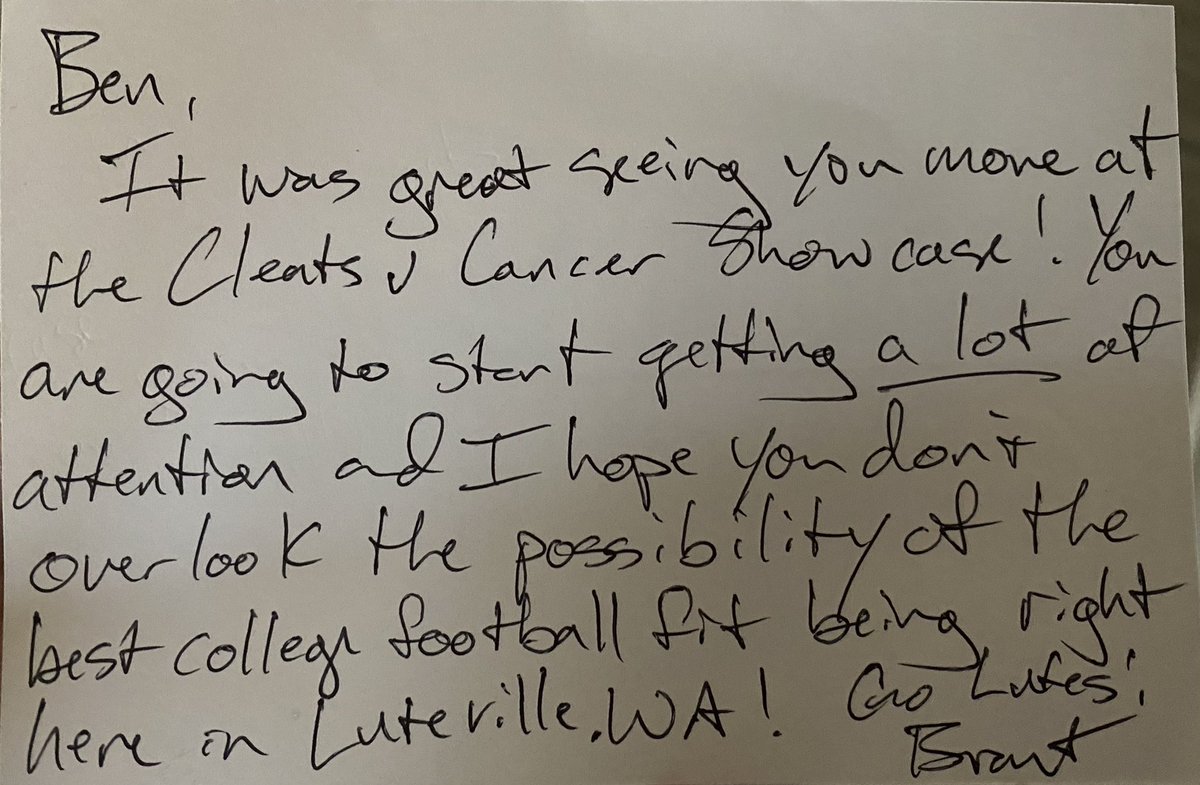 Ben,
It was great seeing you move at
the Cleats v Cancer Showcase! You
are going to start getting a lot of
attention and I hope you don't
overlook the possibility of the
best college football fit being right
here in Luteville, WA! Go Lutes!
Brant